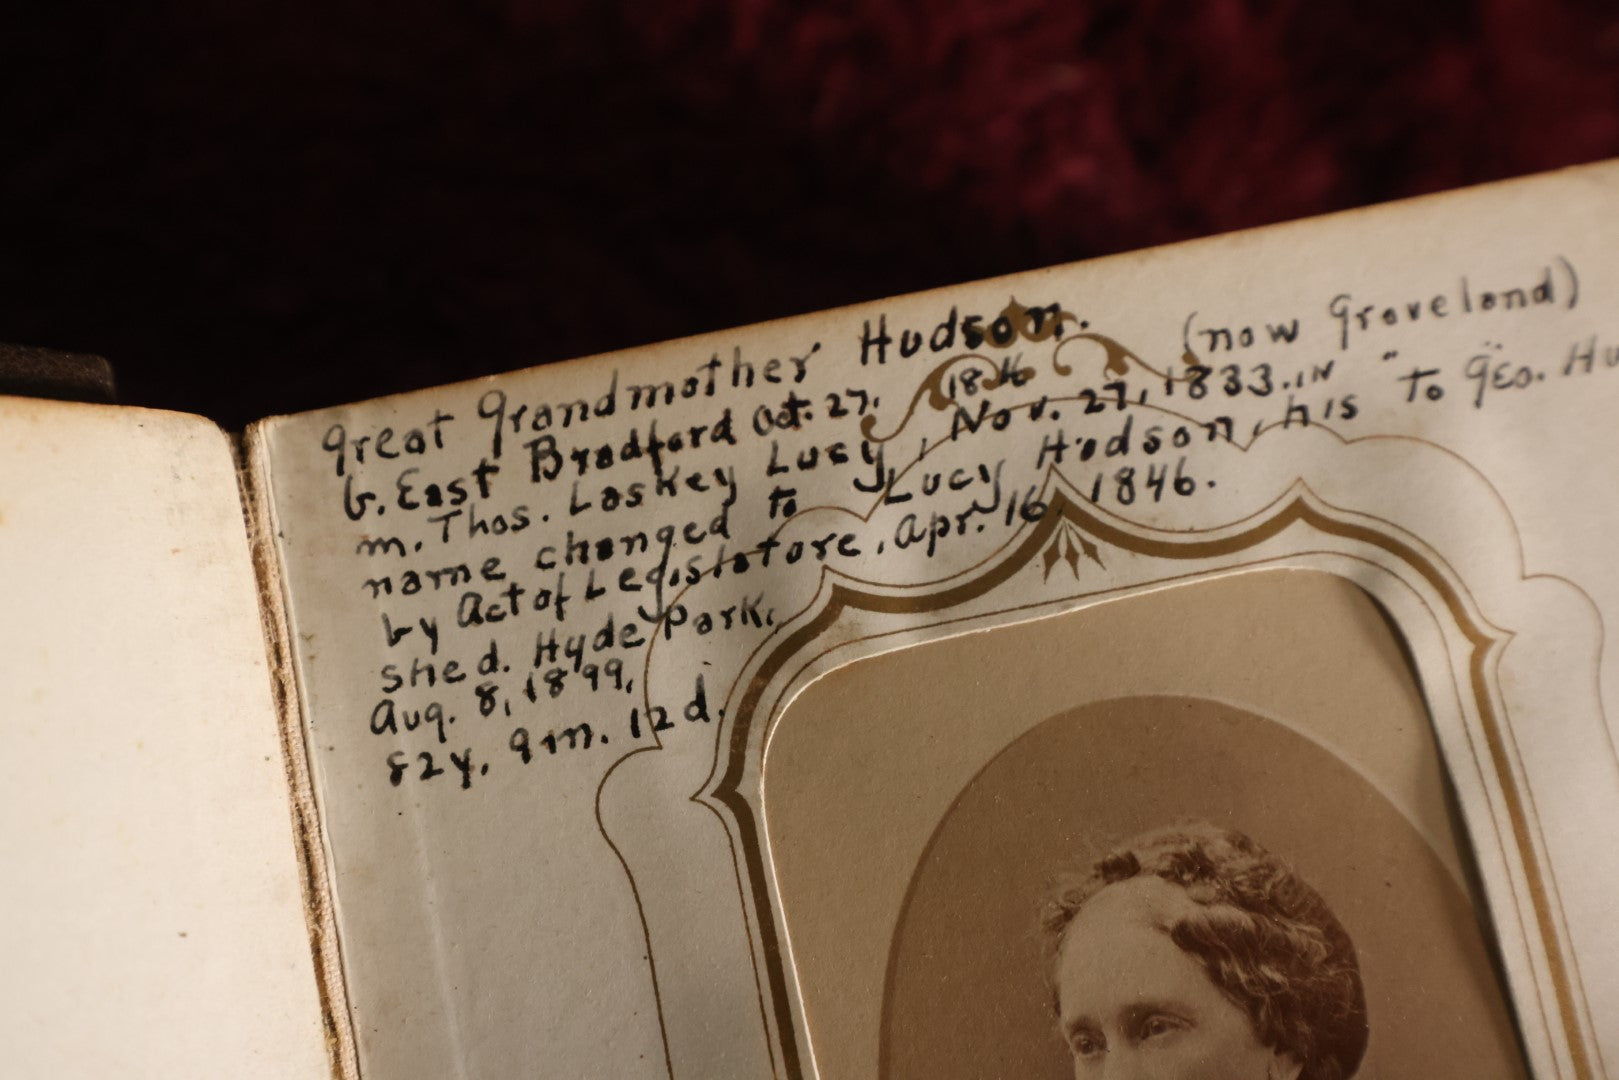 Great Grandmother Hudson.
b. East Bradford Oct. 27, 1816 (now Groveland)
m. Thos. Laskey Lucy, Nov. 27, 1833. IN
name changed to Lucy Hudson, his " " to Geo. Hu
by Act of Legislature, Apr. 16, 1846.
she d. Hyde Park,
Aug. 8, 1899,
82y, 9m. 12d.